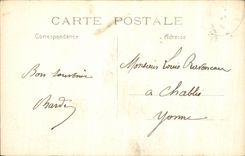 CARTE POSTALE
Correspondance
Adresse
Bon Souvenir
Monsieur Louis
à Chablis
Yonne